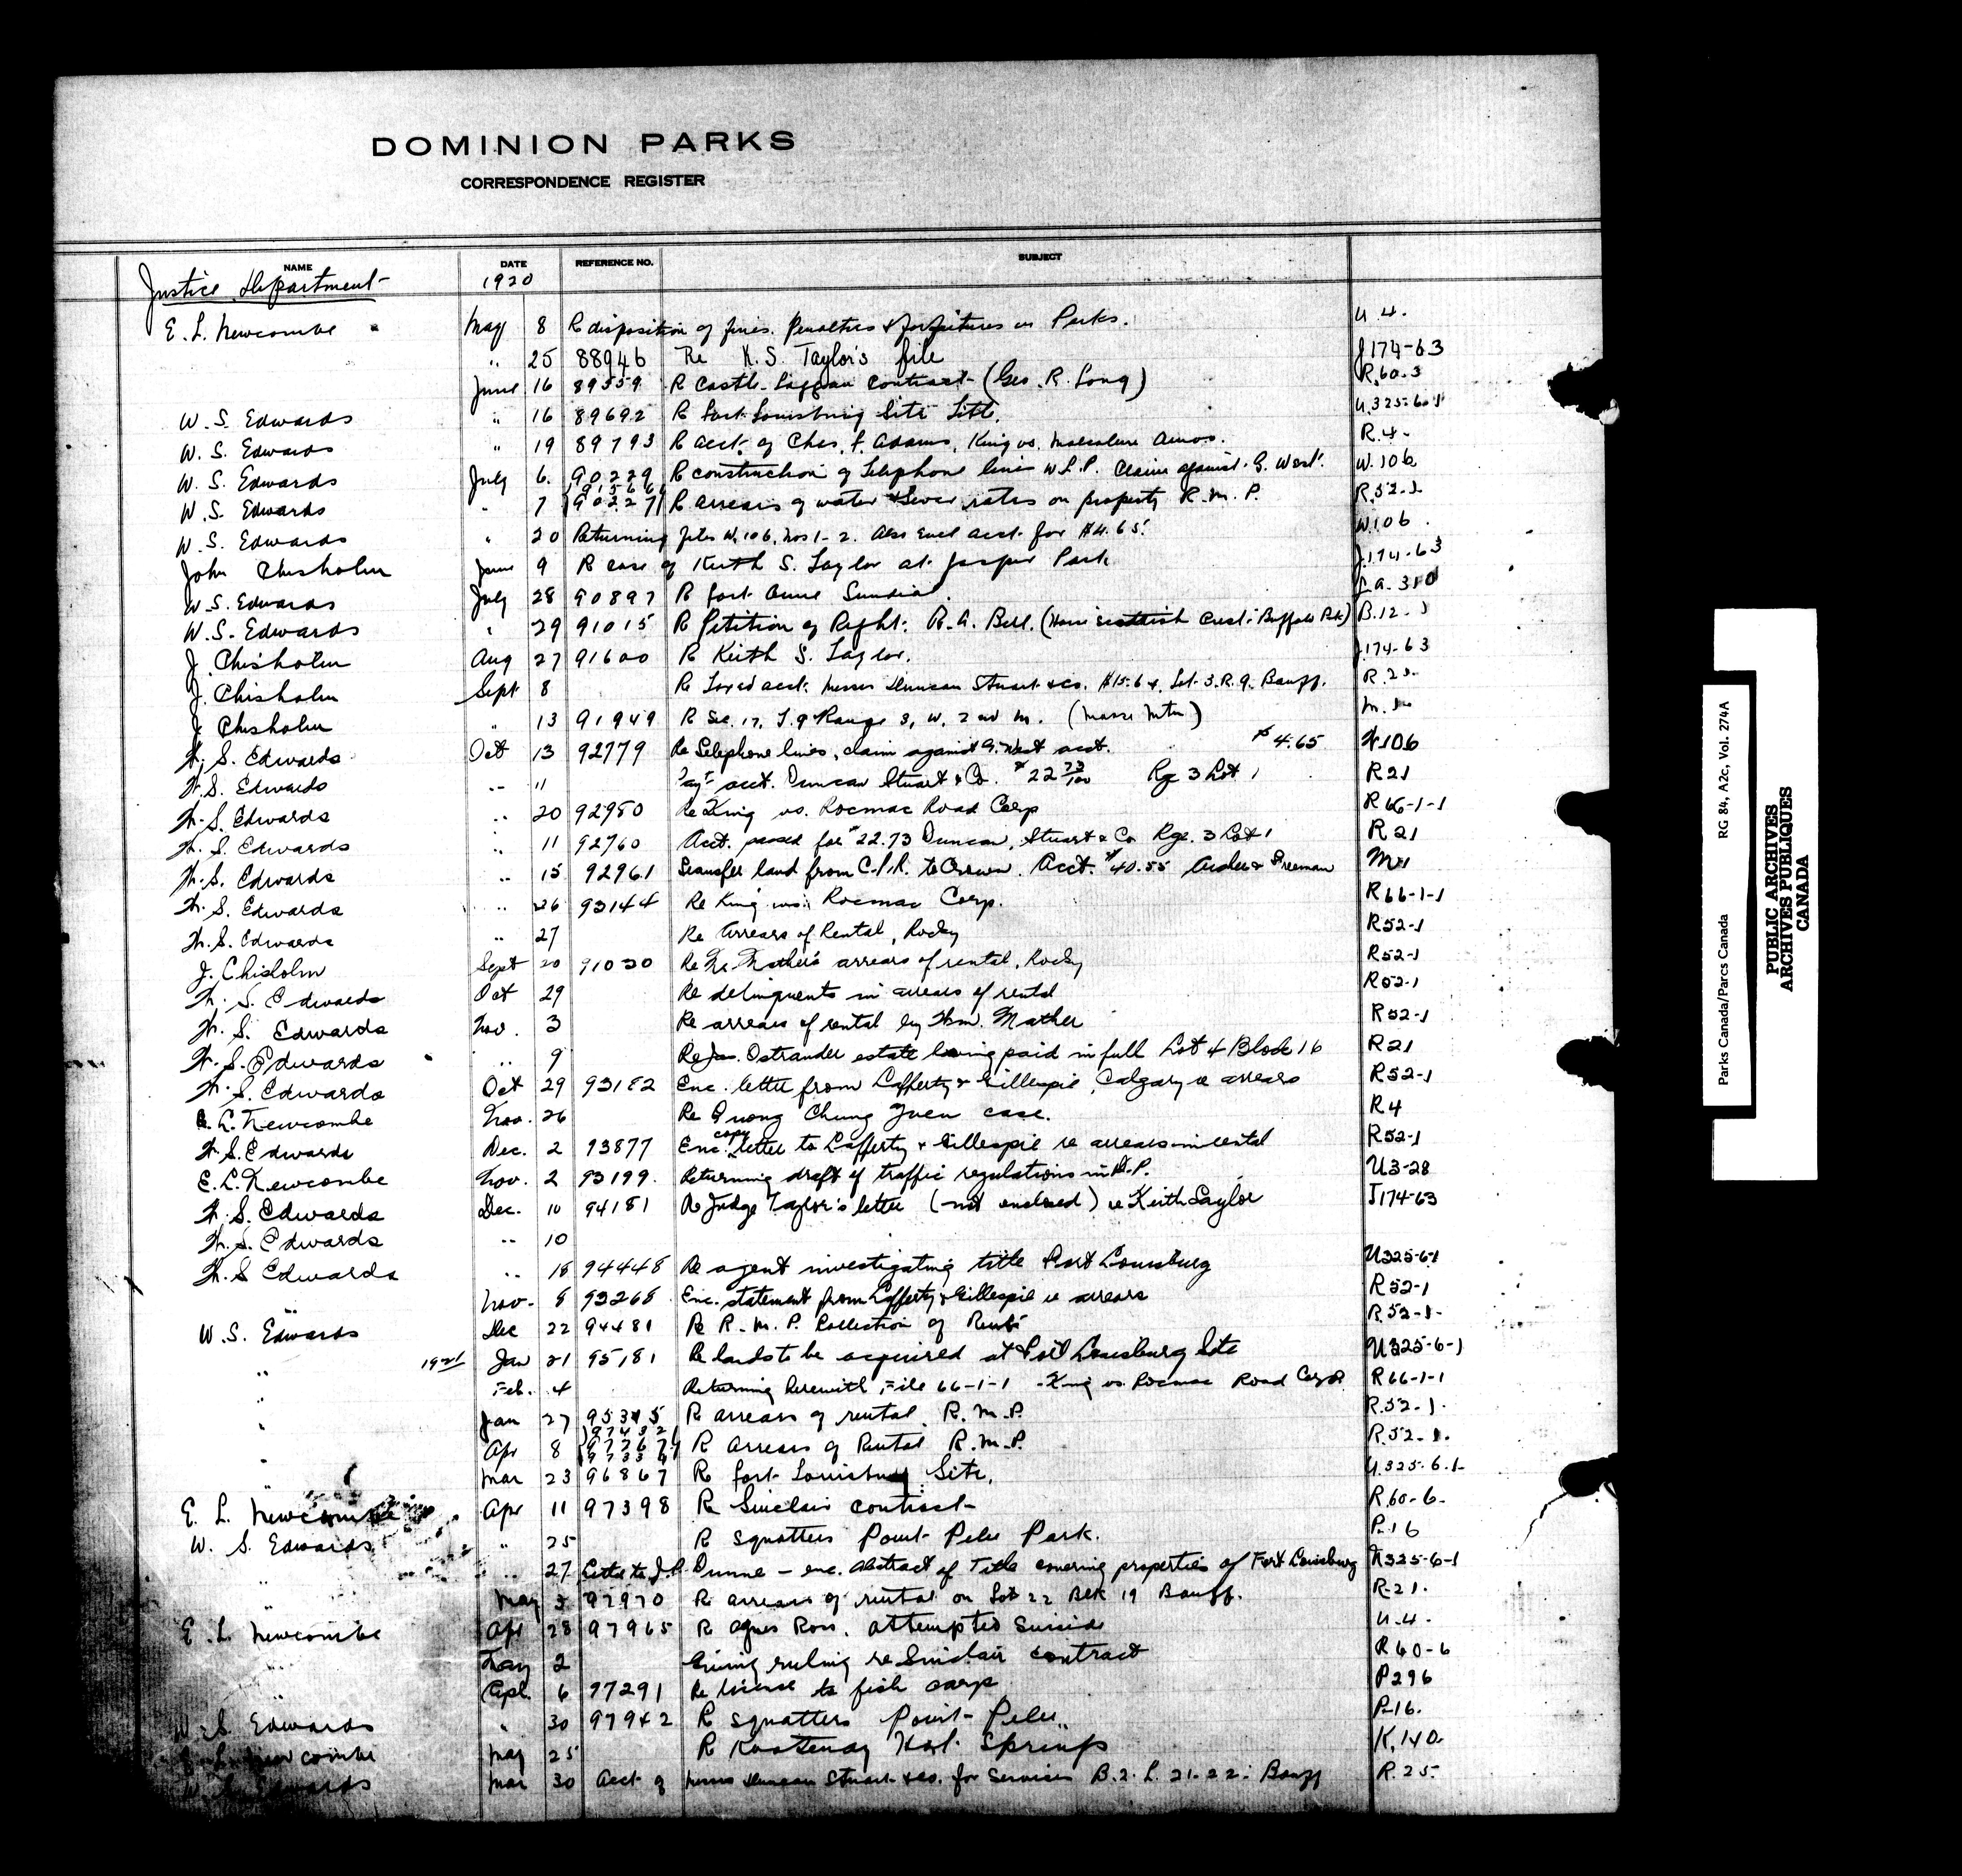 DOMINION PARKS
CORRESPONDENCE REGISTER
NAME DATE REFERENCE NO. SUBJECT
Justice Department 1920
E. L. Newcombe May 8 R disposition of fines. Penalties & forfeitures in Parks. U 4.
" 25 88946 Re K. S. Taylor's file J174-63
June 16 89559 R Castle-Laggan contract (Geo. R. Long) R.60-3
W. S. Edwards " 16 89692 R Fort Louisburg Site Title. U.325-6-1
W. S. Edwards " 19 89793 R acct. of Chas. F. Adams, King vs. Malcolm Amos. R.4-
W. S. Edwards July 6. 90229 R construction of Telephone lines W.L.P. Claim against G. West. W.106
W. S. Edwards " 7 90227 R arrears of water & sewer rates on property R.M.P. R.52-1
W. S. Edwards " 20 Returning files W.106, nos 1-2. Also Encl acct. for $4.65. W.106.
John Chisholm June 9 R case of Keith S. Taylor at Jasper Park J.174-63
W. S. Edwards July 28 90897 R Fort Anne Sundial.
W. S. Edwards " 29 91015 R Petition of Right. R. A. Bell. B.12-1
J. Chisholm Aug 27 91600 R Keith S. Taylor. J.174-63
J. Chisholm Sept 8 Re Taxed acct. Messrs Duncan Stuart & Co. Banff.
J. Chisholm " 13 91949 R Sec. 17, T.9 Range 3, W. 2nd M. (Moose Mtn)
W. S. Edwards Oct 13 92779 Re Telephone lines, claim against G. West acct. $4.65 W106
W. S. Edwards " 11 acct. Duncan Stuart & Co. $22 73/100 Rge 3 Lot 1 R21
W. S. Edwards " 20 92980 Re King vs. Rocmac Road Corp R66-1-1
W. S. Edwards " 11 92760 Acct. passed for $22.73 Duncan, Stuart & Co Rge. 3 Lot 1 R21
W. S. Edwards " 15 92961 Transfer land from C.P.R. to Crown. Acct. $40.55 Freeman
W. S. Edwards " 26 93144 Re King vs. Rocmac Corp. R66-1-1
W. S. Edwards " 27 Re Arrears of Rental, Rocky R52-1
J. Chisholm Sept 20 91030 Re Wm Mather's arrears of rental, Rocky R52-1
W. S. Edwards Oct 29 Re delinquents in arrears of rental R52-1
W. S. Edwards Nov. 3 Re arrears of rental by Wm. Mather R52-1
W. S. Edwards " 9 Re Jas. Ostrander estate having paid in full Lot 4 Block 16 R21
W. S. Edwards Oct 29 93182 Enc. letter from Lafferty & Gillespie, Calgary re arrears R52-1
E. L. Newcombe Nov. 26 Re Quong Chung Yuen case. R4
W. S. Edwards Dec. 2 93877 Enc. copy letter to Lafferty & Gillespie re arrears in rental R52-1
E. L. Newcombe Nov. 2 93199. Returning draft of traffic regulations in D.P. U3-28
W. S. Edwards Dec. 10 94181 Re Judge Taylor's letter (not enclosed) re Keith Taylor J174-63
W. S. Edwards " 10
W. S Edwards " 18 94448 Re agent investigating title Fort Louisburg U325-6-1
" Nov. 8 93268 Enc. statement from Lafferty & Gillespie re arrears R52-1
W. S. Edwards Dec 22 94481 Re R.M.P. Collection of Rents R.52-1-
" 1921 Jan 21 95181 Re lands to be acquired at Fort Louisburg Site U325-6-1
Feb. 4 Returning herewith File 66-1-1 - King vs. Rocmac Road Corp. R66-1-1
" Jan 27 R arrears of rental. R.M.P. R.52-1-
" Apr 8 R arrears of Rental R.M.P. R.52-1.
" Mar 23 96867 R Fort Louisburg Site. U.325-6-1-
E. L. Newcombe Apr 11 97398 R Sinclair contract- R.60-6-
W. S. Edwards " 25 R squatters Point Pelee Park. P-16
" " 27 Letter to J.P. Dunne - enc. Abstract of Title covering properties of Fort Louisburg U325-6-1
" May 3 97970 R arrears of rental on Lot 22 Blk 19 Banff. R-21.
E. L. Newcombe Apr 28 97965 R Agnes Ross, attempted suicide U.4.
May 2 Giving ruling re Sinclair contract R60-6
" Apl. 6 97291 Re license to fish carp P296
W. S. Edwards " 30 97942 R squatters Point Pelee P-16.
E. L. Newcombe May 25 R Kootenay Hot Springs K.140.
W. S. Edwards Mar 30 Acct of Messrs Duncan Stuart & Co. for Services B.2. L. 21-22. Banff R.25
Parks Canada/Parcs Canada RG 84, A2c, Vol. 274A
PUBLIC ARCHIVES
ARCHIVES PUBLIQUES
CANADA